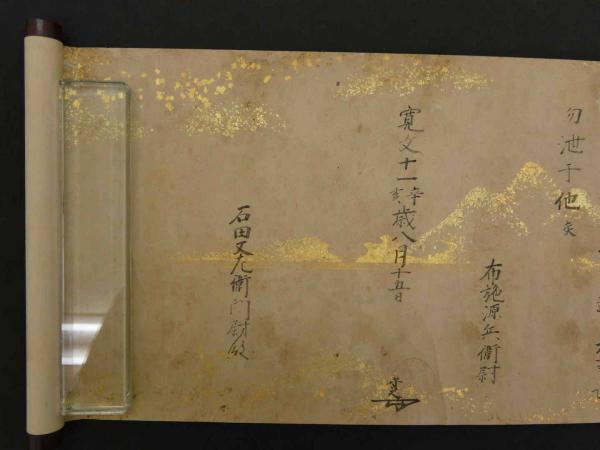 勿泄于他矣
布施源兵衛尉
寛文十一辛亥歳八月十五日
石田又左衛門尉殿